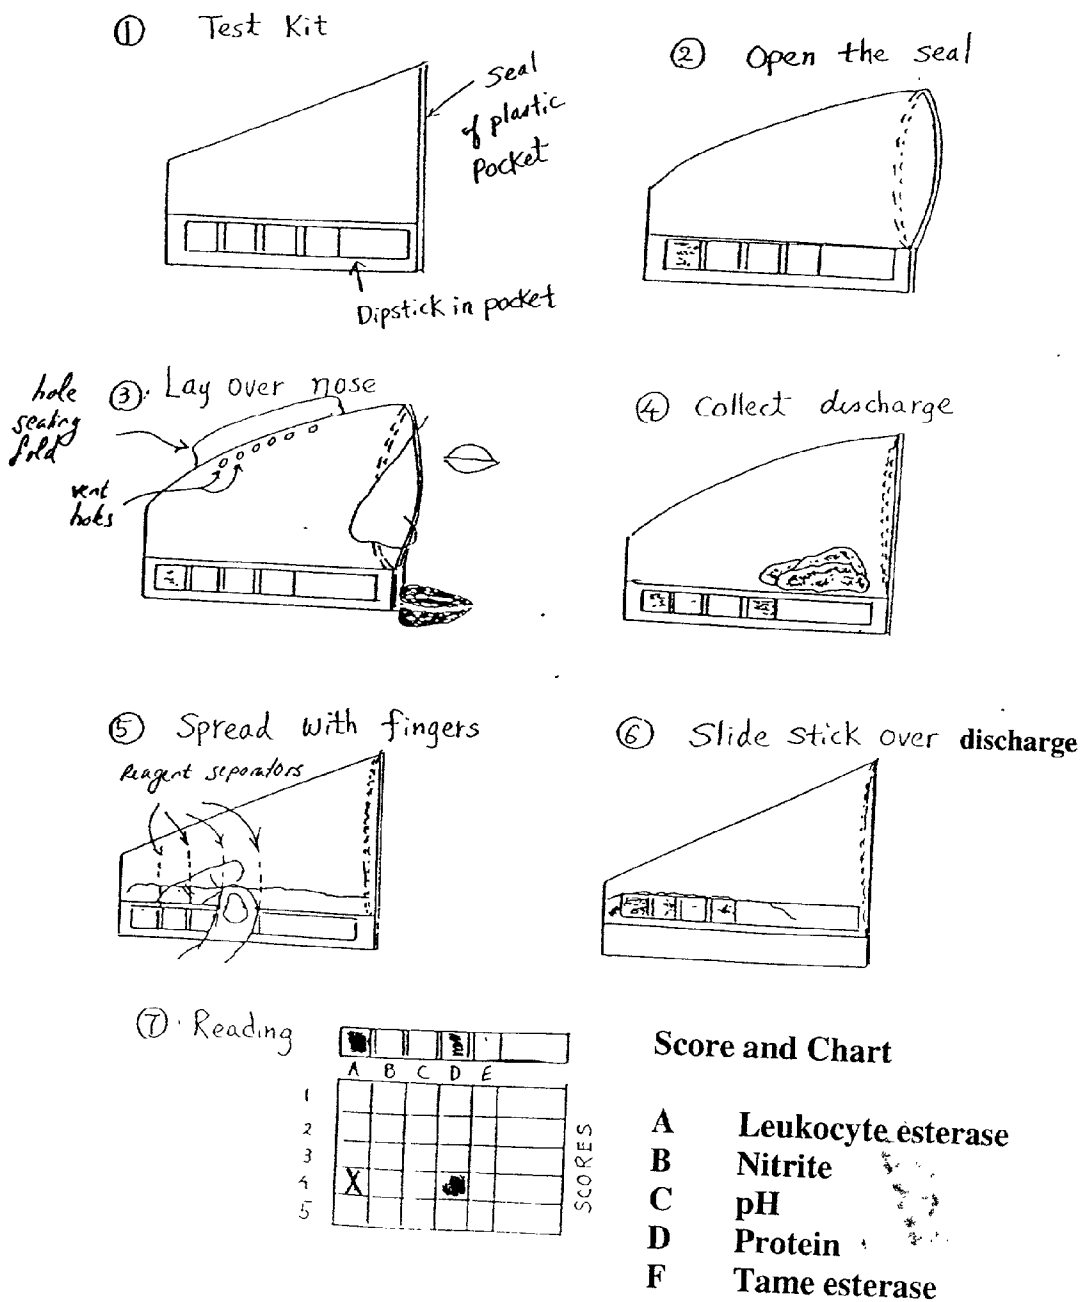 ① Test Kit
seal
of plastic
pocket
Dipstick in pocket
② Open the seal
③. Lay over nose
hole
sealing
fold
vent
holes
④ Collect discharge
⑤ Spread with fingers
Reagent separators
⑥ Slide stick over discharge
⑦. Reading
A B C D E
1
2
3
4 X
5
SCORES
Score and Chart
A Leukocyte esterase
B Nitrite
C pH
D Protein
F Tame esterase